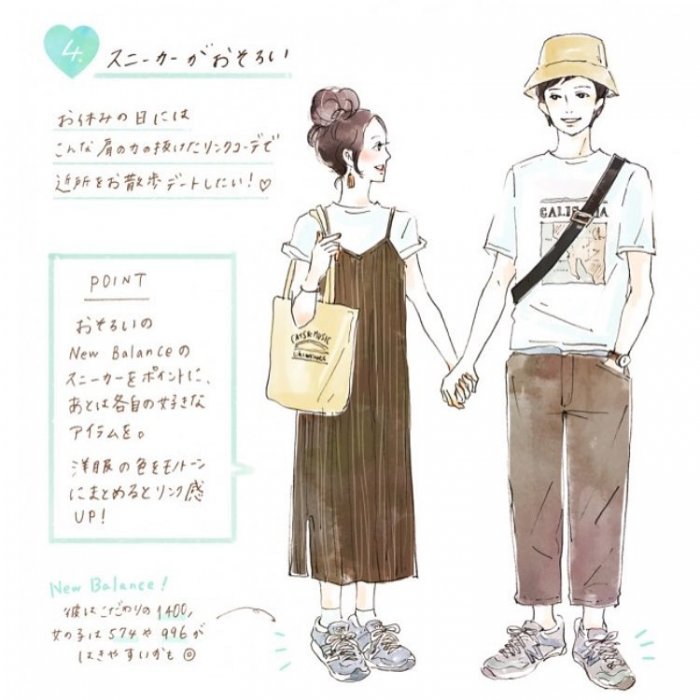 4.
スニーカーがおそろい
お休みの日には
こんな肩の力の抜けたリンクコーデで
近所をお散歩デートしたい!♡
POINT
おそろいの
New Balanceの
スニーカーをポイントに、
あとは各自の好きな
アイテムを。
洋服の色をモノトーン
にまとめるとリンク感
UP!
New Balance!
彼はこだわりの1400,
女の子は574や996が
はきやすいかも◎
CATS&MUSIC
CALIF